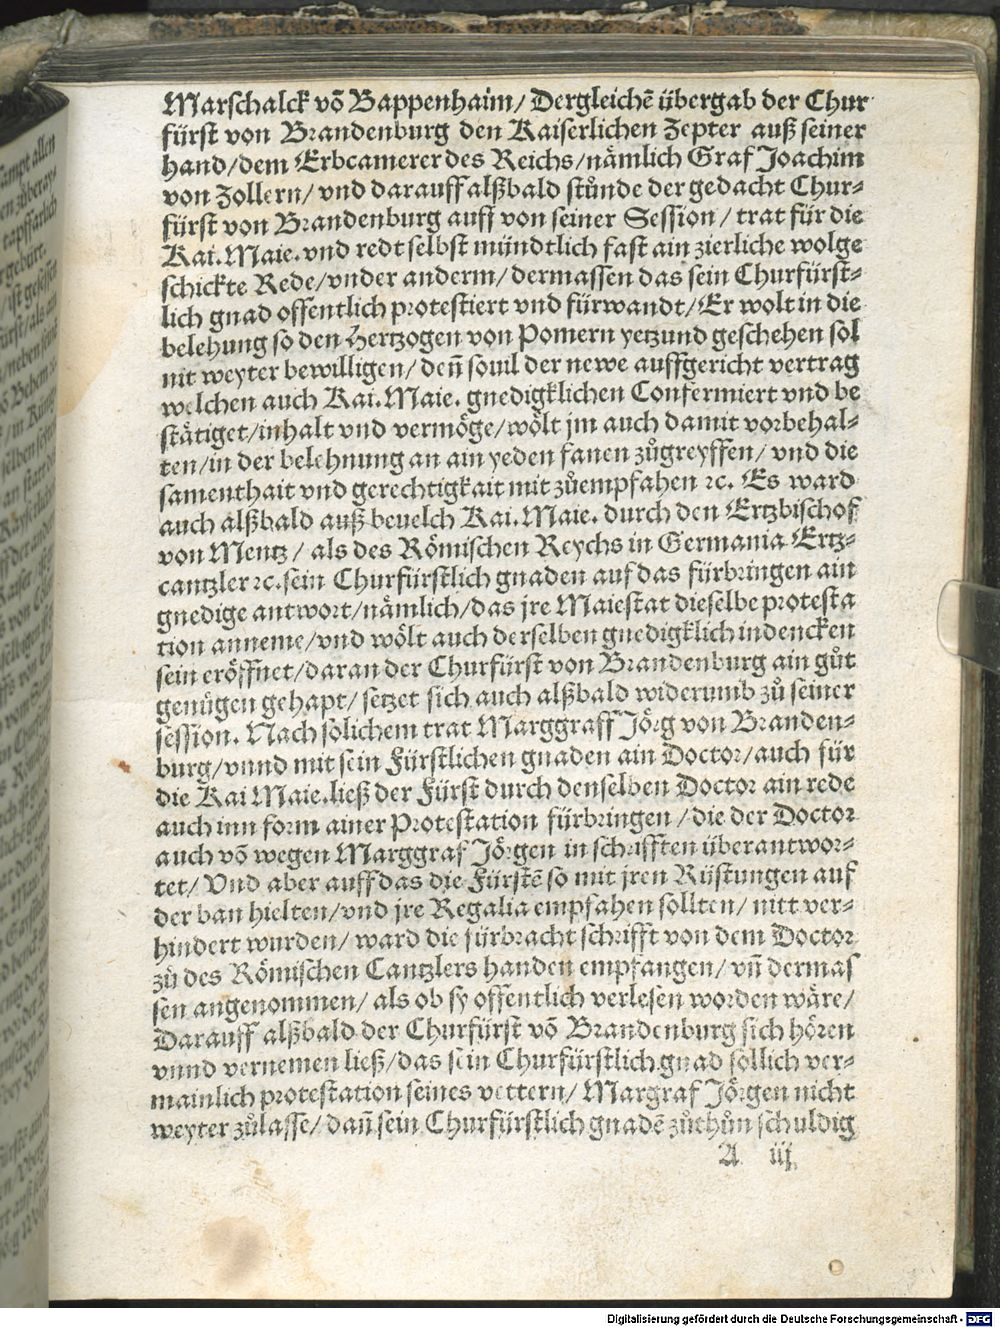 Marschalck võ Bappenhaim/ Dergleichē übergab der Chur
fürst von Brandenburg den Kaiserlichen Zepter auß seiner
hand/dem Erbcamerer des Reichs/nämlich Graf Joachim
von Zollern/ vnd darauff alßbald stůnde der gedacht Chur⸗
fürst von Brandenburg auff von seiner Session/ trat für die
Kai. Maie. vnd redt selbst mündtlich fast ain zierliche wolge
schickte Rede/vnder anderm/ dermassen das sein Churfürst⸗
lich gnad offentlich protestiert vnd fürwandt/ Er wolt in die
belehung so den Hertzogen von Pomern yetzund geschehen sol
nit weyter bewilligen/ deñ souil der newe auffgericht vertrag
welchen auch Kai. Maie. gnedigklichen Confermiert vnd be
stätiget/inhalt vnd vermöge/wölt jm auch damit vorbehal⸗
ten/in der belehnung an ain yeden fanen zůgreyffen/ vnd die
samenthait vnd gerechtigkait mit zůempfahen ꝛc. Es ward
auch alßbald auß beuelch Kai. Maie. durch den Ertzbischof
von Mentz/ als des Römischen Reychs in Germania Ertz⸗
cantzler ꝛc. sein Churfürstlich gnaden auf das fürbringen ain
gnedige antwort/nämlich/das jre Maiestat dieselbe protesta
tion anneme/vnd wölt auch derselben gnedigklich indencken
sein eröffnet/daran der Churfürst von Brandenburg ain gůt
genügen gehapt/ setzet sich auch alßbald widerumb zů seiner
session. Nach solichem trat Marggraff Jörg von Branden⸗
burg/vnnd mit sein Fürstlichen gnaden ain Doctor/auch für
die Kai Maie. ließ der Fürst durch denselben Doctor ain rede
auch inn form ainer Protestation fürbringen/die der Doctor
auch võ wegen Marggraf Jörgen in schrifften überantwor⸗
tet/ Vnd aber auff das die Fürstē so mit jren Rüstungen auf
der ban hielten/vnd jre Regalia empfahen sollten/ nitt ver⸗
hindert wurden/ ward die fürbracht schrifft von dem Doctor
zů des Römischen Cantzlers handen empfangen/ vñ dermas
sen angenommen/ als ob sy offentlich verlesen worden wäre/
Darauff alßbald der Churfürst võ Brandenburg sich hören
vnnd vernemen ließ/das sein Churfürstlich gnad söllich ver⸗
mainlich protestation seines vettern/ Margraf Jörgen nicht
weyter zůlasse/ dañ sein Churfürstlich gnadē zůthůn schuldig
A iij
Digitalisierung gefördert durch die Deutsche Forschungsgemeinschaft - DFG